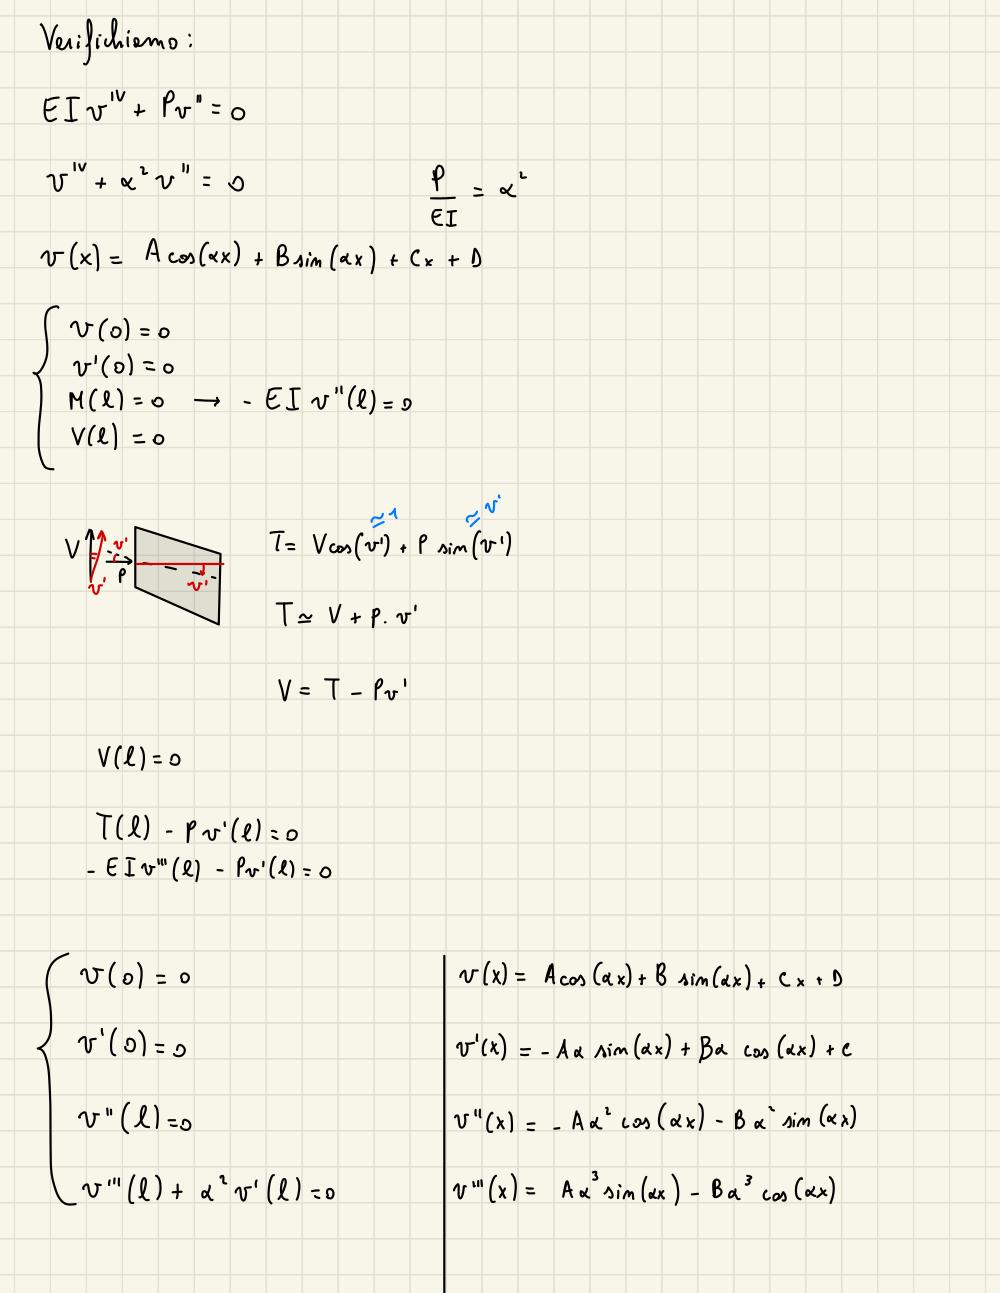 Verifichiamo:
EI v^IV + Pv" = 0
v^IV + α² v" = 0
P/EI = α²
v(x) = A cos(αx) + B sin(αx) + Cx + D
v(0) = 0
v'(0) = 0
M(l) = 0 → - EI v"(l) = 0
V(l) = 0
≃ 1 ≃ v'
V v' P v' v'
T = V cos(v') + P sin(v')
T ≃ V + P. v'
V = T - Pv'
V(l) = 0
T(l) - P v'(l) = 0
- EI v'''(l) - Pv'(l) = 0
v(0) = 0
v'(0) = 0
v"(l) = 0
v'''(l) + α² v'(l) = 0
v(x) = A cos(αx) + B sin(αx) + Cx + D
v'(x) = - Aα sin(αx) + Bα cos(αx) + C
v"(x) = - Aα² cos(αx) - Bα² sin(αx)
v'''(x) = Aα³ sin(αx) - Bα³ cos(αx)